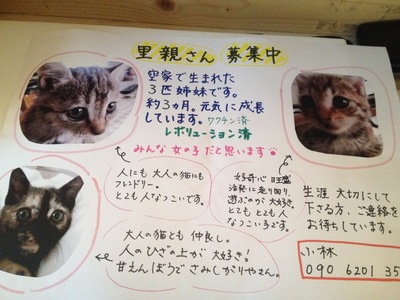 里親さん 募集中
空家で生まれた
3匹姉妹です。
約3ヵ月。元気に成長
しています。ワクチン済
レボリューション済
みんな女の子だと思います
人にも大人の猫にも
フレンドリー。
とても人なつこいです。
好奇心旺盛
活発に走り回り、
遊ぶのが大好き。
とても とても 人
なつこい子です。
大人の猫とも 仲良し。
人のひざの上が 大好き!
甘えんぼうで さみしがりやさん。
生涯 大切にして
下さる方、ご連絡を
お待ちしています。
小林
090 6201 35